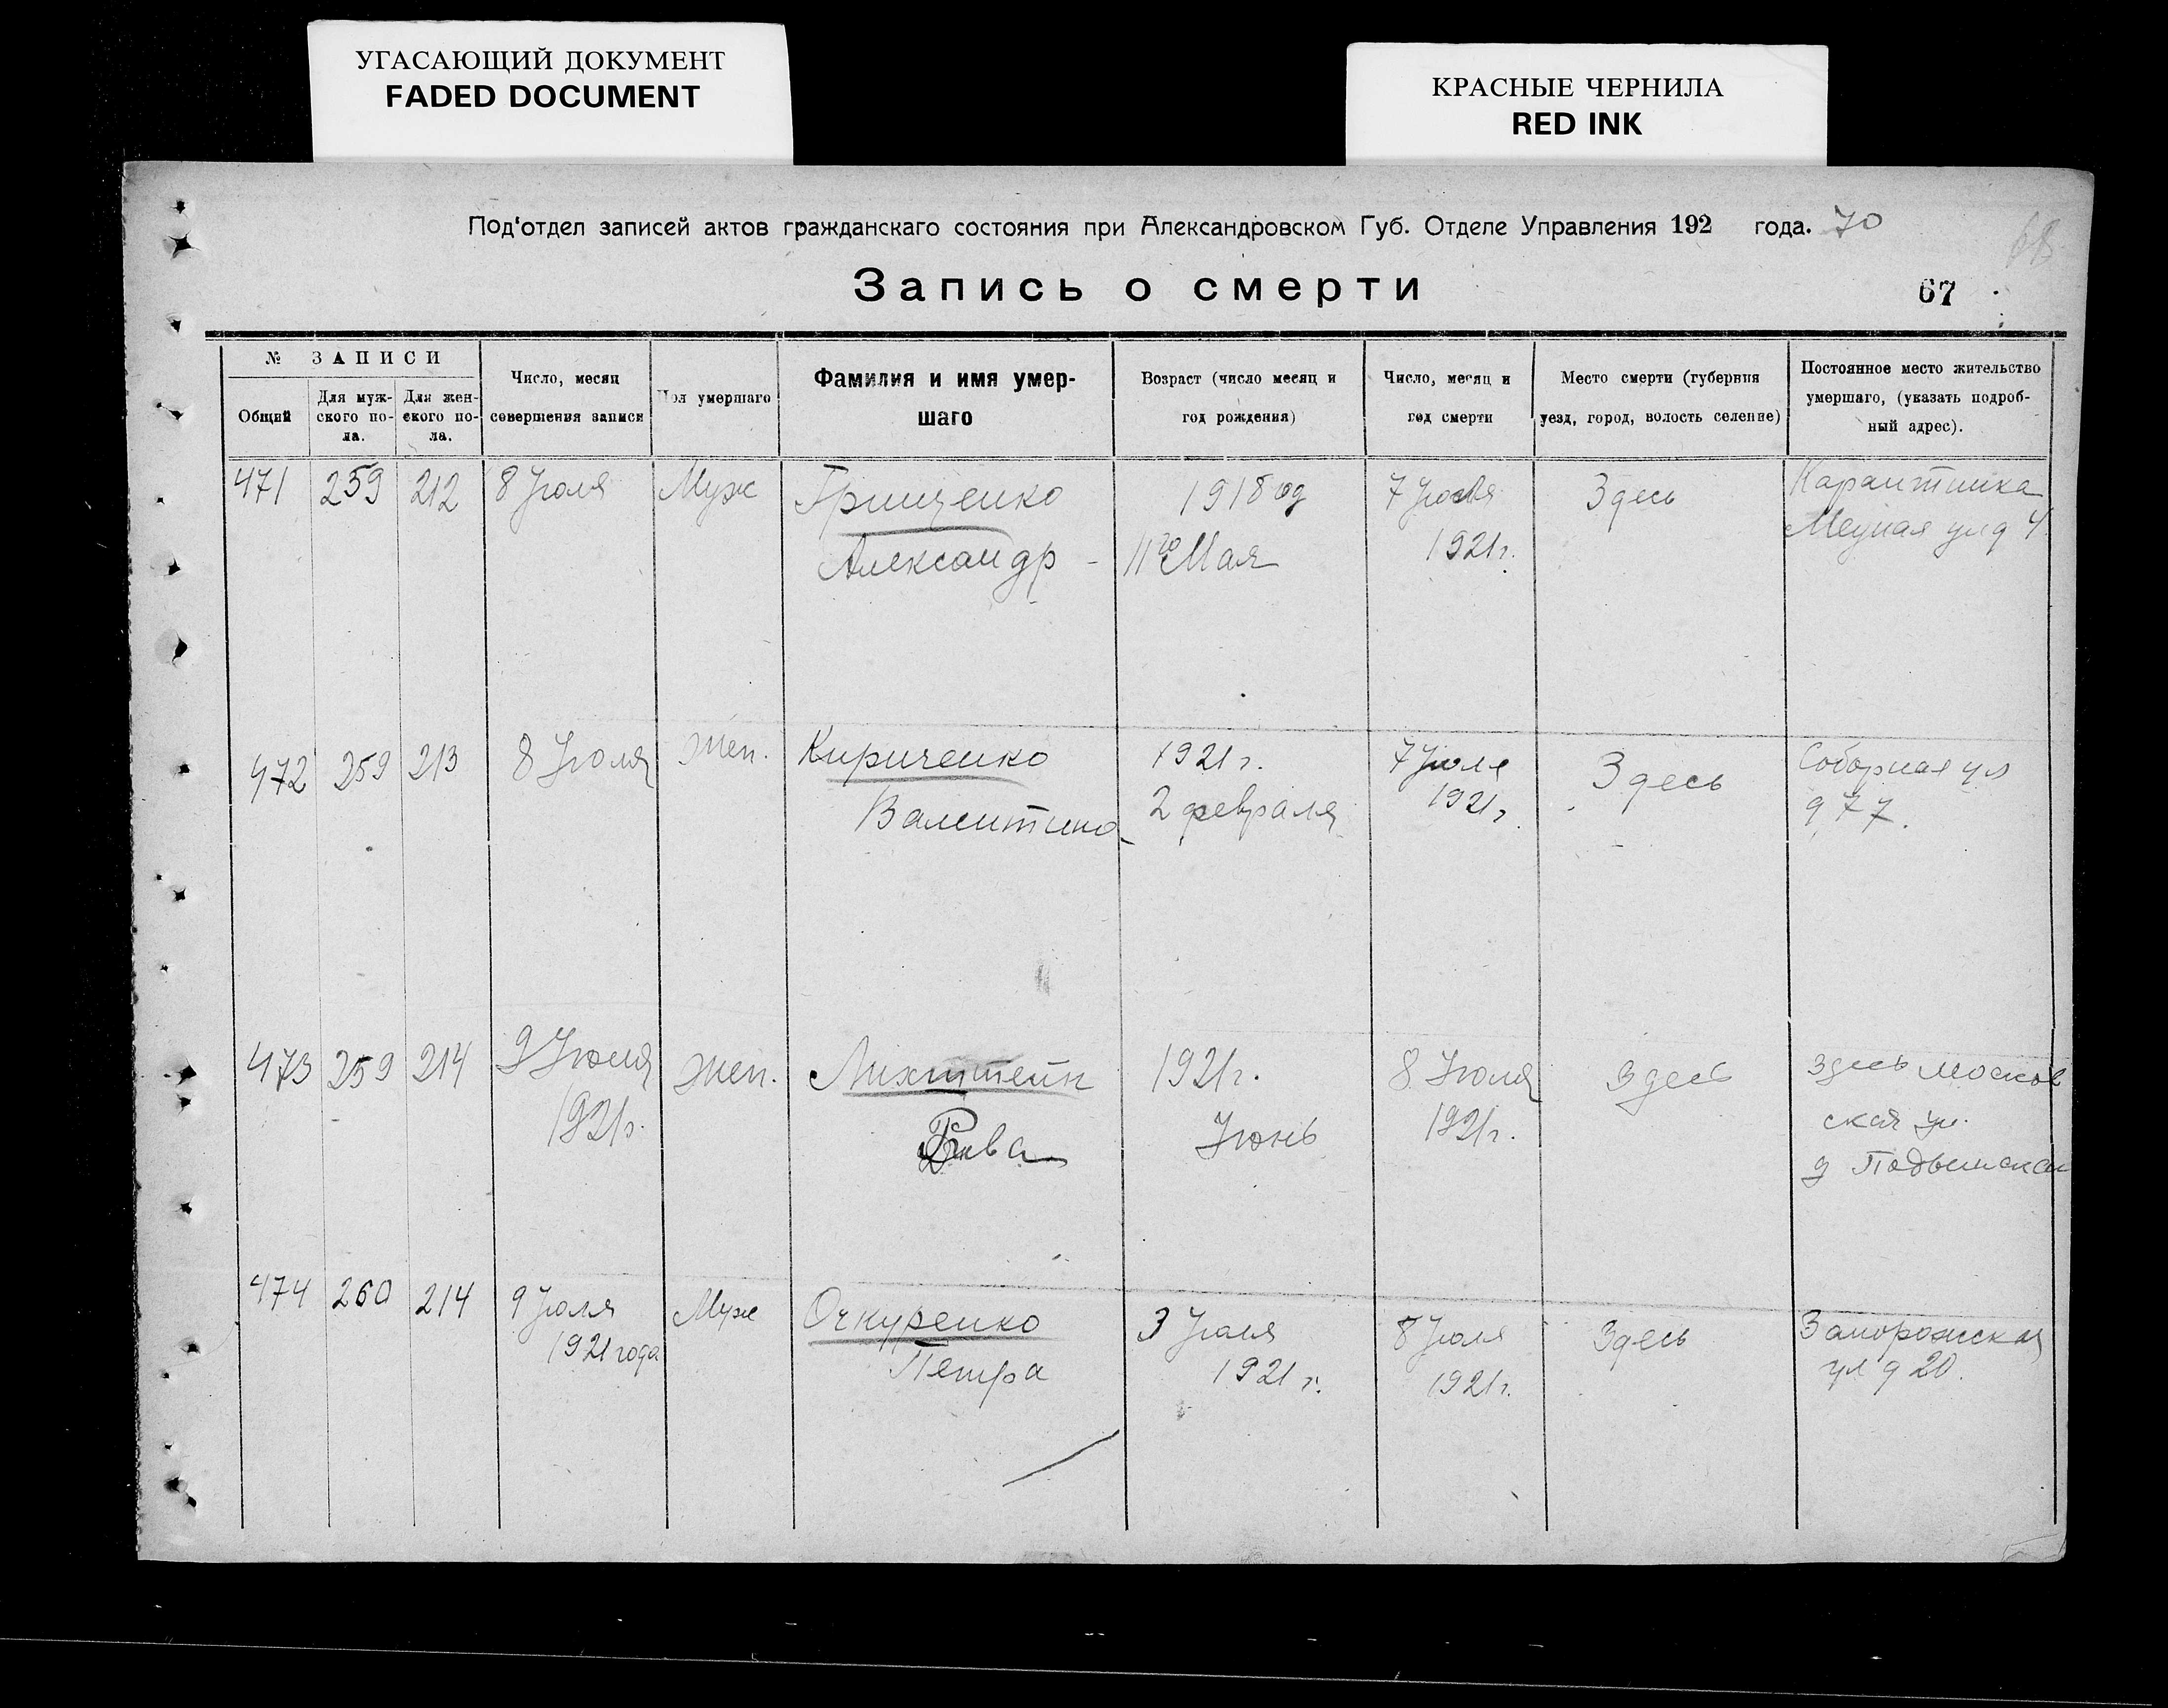 УГАСАЮЩИЙ ДОКУМЕНТ
FADED DOCUMENT
КРАСНЫЕ ЧЕРНИЛА
RED INK
Под'отдел записей актов гражданскаго состояния при Александровском Губ. Отделе Управления 192 года. 70
68
Запись о смерти
67
№ ЗАПИСИ
Общий
Для муж-
ского по-
ла.
Для жен-
ского по-
ла.
Число, месяц
совершения записи
Пол умершаго
Фамилия и имя умер-
шаго
Возраст (число месяц и
год рождения)
Число, месяц и
год смерти
Место смерти (губерния
уезд, город, волость селение)
Постоянное место жительство
умершаго, (указать подроб-
ный адрес).
471 259 212 8 Июля Муж Грищенко 1918 год 7 Июля Здесь Карантинка
Александр - 11го Мая 1921г. ул д 4
472 259 213 8 Июля Жен. Кириченко 1921 г. 7 Июля Здесь Соборная ул
Валентина 2 февраля 1921г. д 77.
473 259 214 9 Июля Жен. Лихтштейн 1921г. 8 Июля Здесь Здесь Москов
1921г. Рива Июнь 1921г. ская ул.
д
474 260 214 9 Июля Муж Очкуренко 3 Июля 8 Июля Здесь Запорожская
1921 года Петра 1921 г. 1921г. ул д 20.